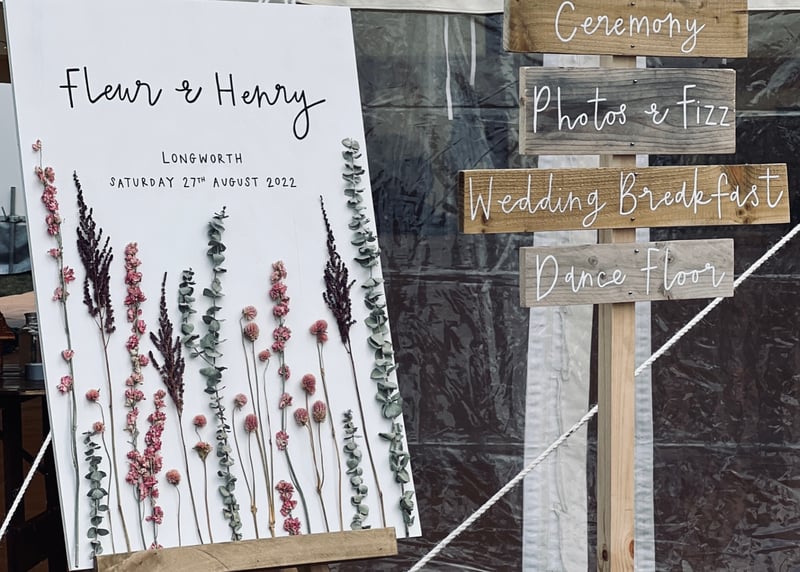 Fleur & Henry
LONGWORTH
SATURDAY 27TH AUGUST 2022
Ceremony
Photos & Fizz
Wedding Breakfast
Dance Floor